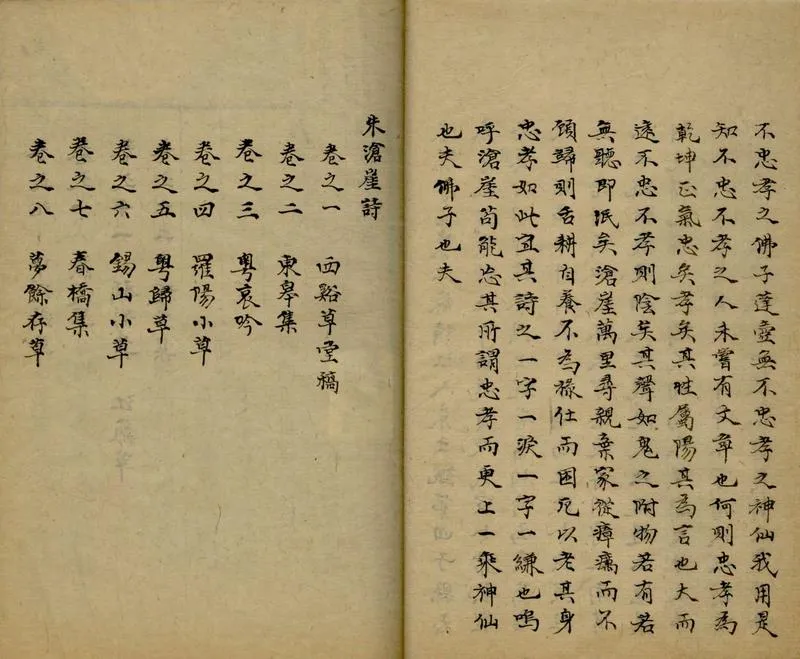 不忠孝之佛子蓬壺無不忠孝之神仙我用是
知不忠不孝之人未嘗有文章也何則忠孝為
乾坤正氣忠矣孝矣其性屬陽其為言也大而
遠不忠不孝則陰矣其聲如鬼之附物若有若
無聽即泯矣滄崖萬里尋親棄家從瘴癘而不
頋歸則舌耕自養不為祿仕而困死以老其身
忠孝如此宜其詩之一字一淚一字一縑也嗚
呼滄崖苟能忘其所謂忠孝而更上一乘神仙
也夫佛子也夫
朱滄崖詩
卷之一 西谿草堂稿
卷之二 東皋集
卷之三 粵哀吟
卷之四 羅陽小草
卷之五 粵歸草
卷之六 錫山小草
卷之七 春橋集
卷之八 夢餘存草